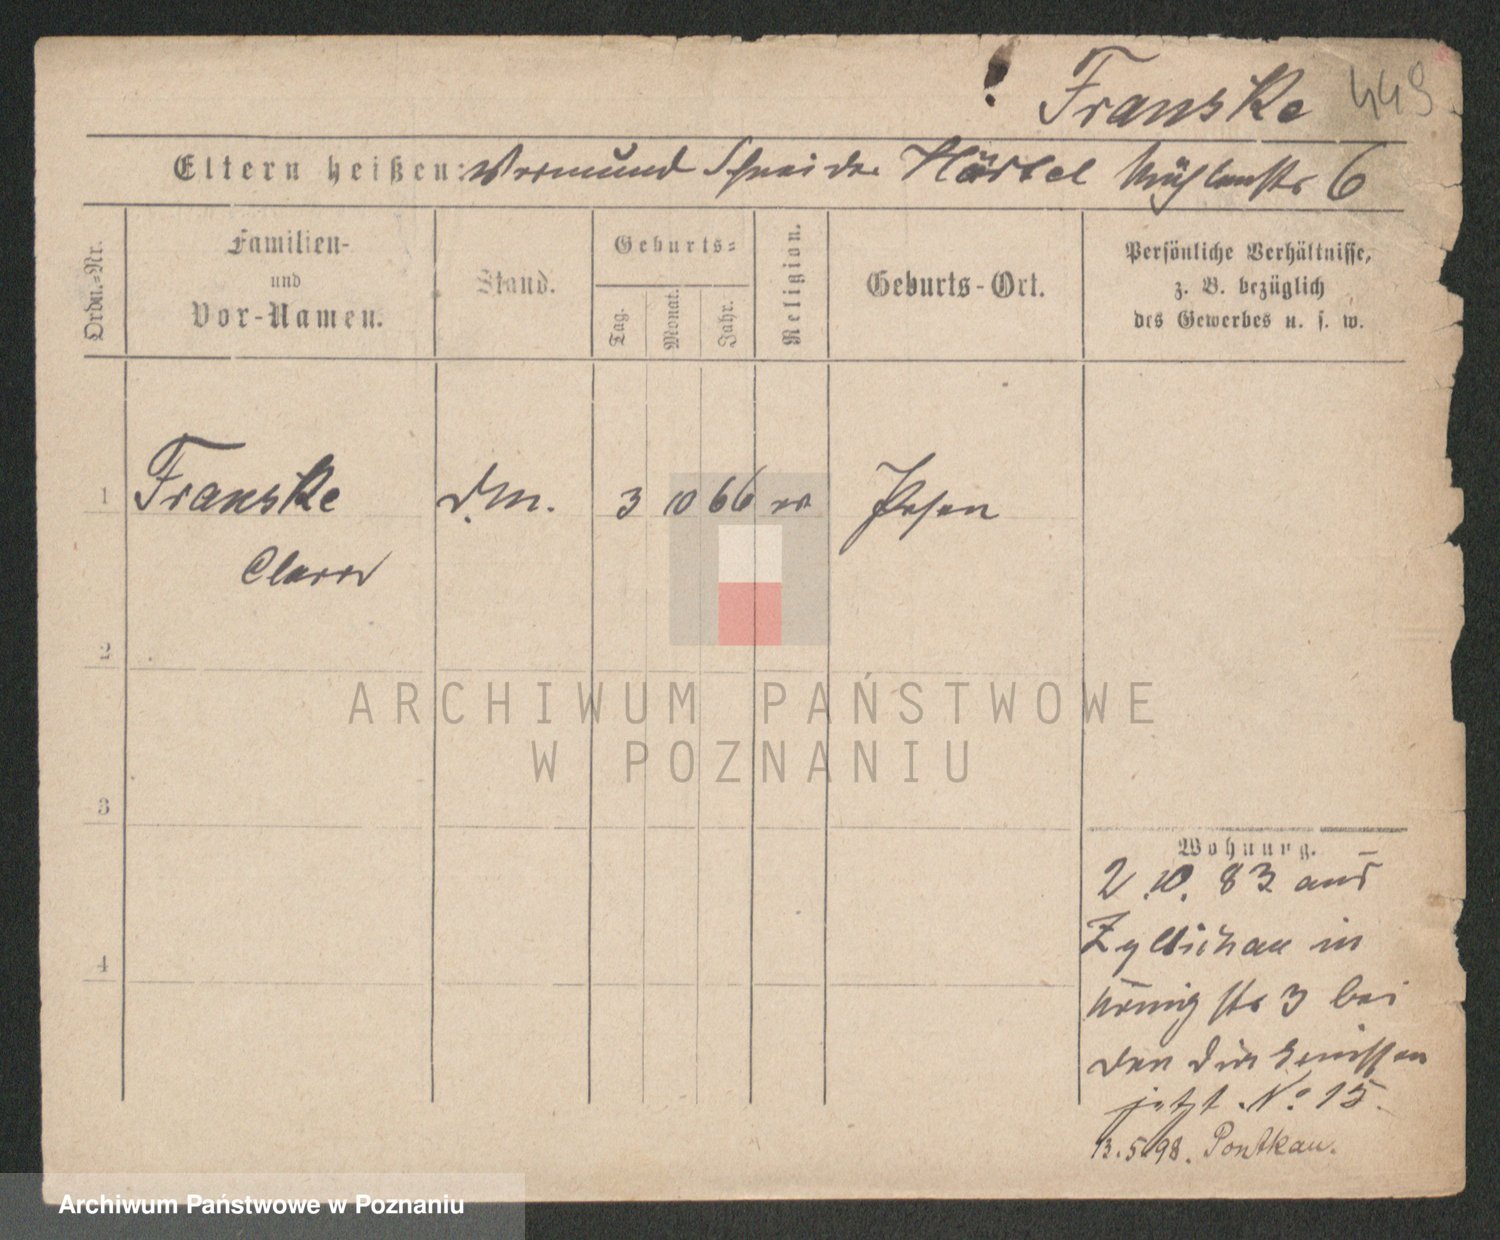 Franske 449
Eltern heißen: Vormund Schneider Härtel Mühlenstr 6
Ordn.-Nr.
Familien-
und
Vor-Namen.
Stand.
Geburts-
Tag.
Monat.
Jahr.
Religion.
Geburts-Ort.
Persönliche Verhältnisse,
z. B. bezüglich
des Gewerbes u. s. w.
1 Franske d.M. 3 10 66 ev Posen
Clara
2
3
4
ARCHIWUM PAŃSTWOWE
W POZNANIU
Wohnung.
2.10.83 aus
Züllichau in
Königstr 3 bei
den Diakonissen
jetzt No 15.
13.5.98. Pontkau.
Archiwum Państwowe w Poznaniu